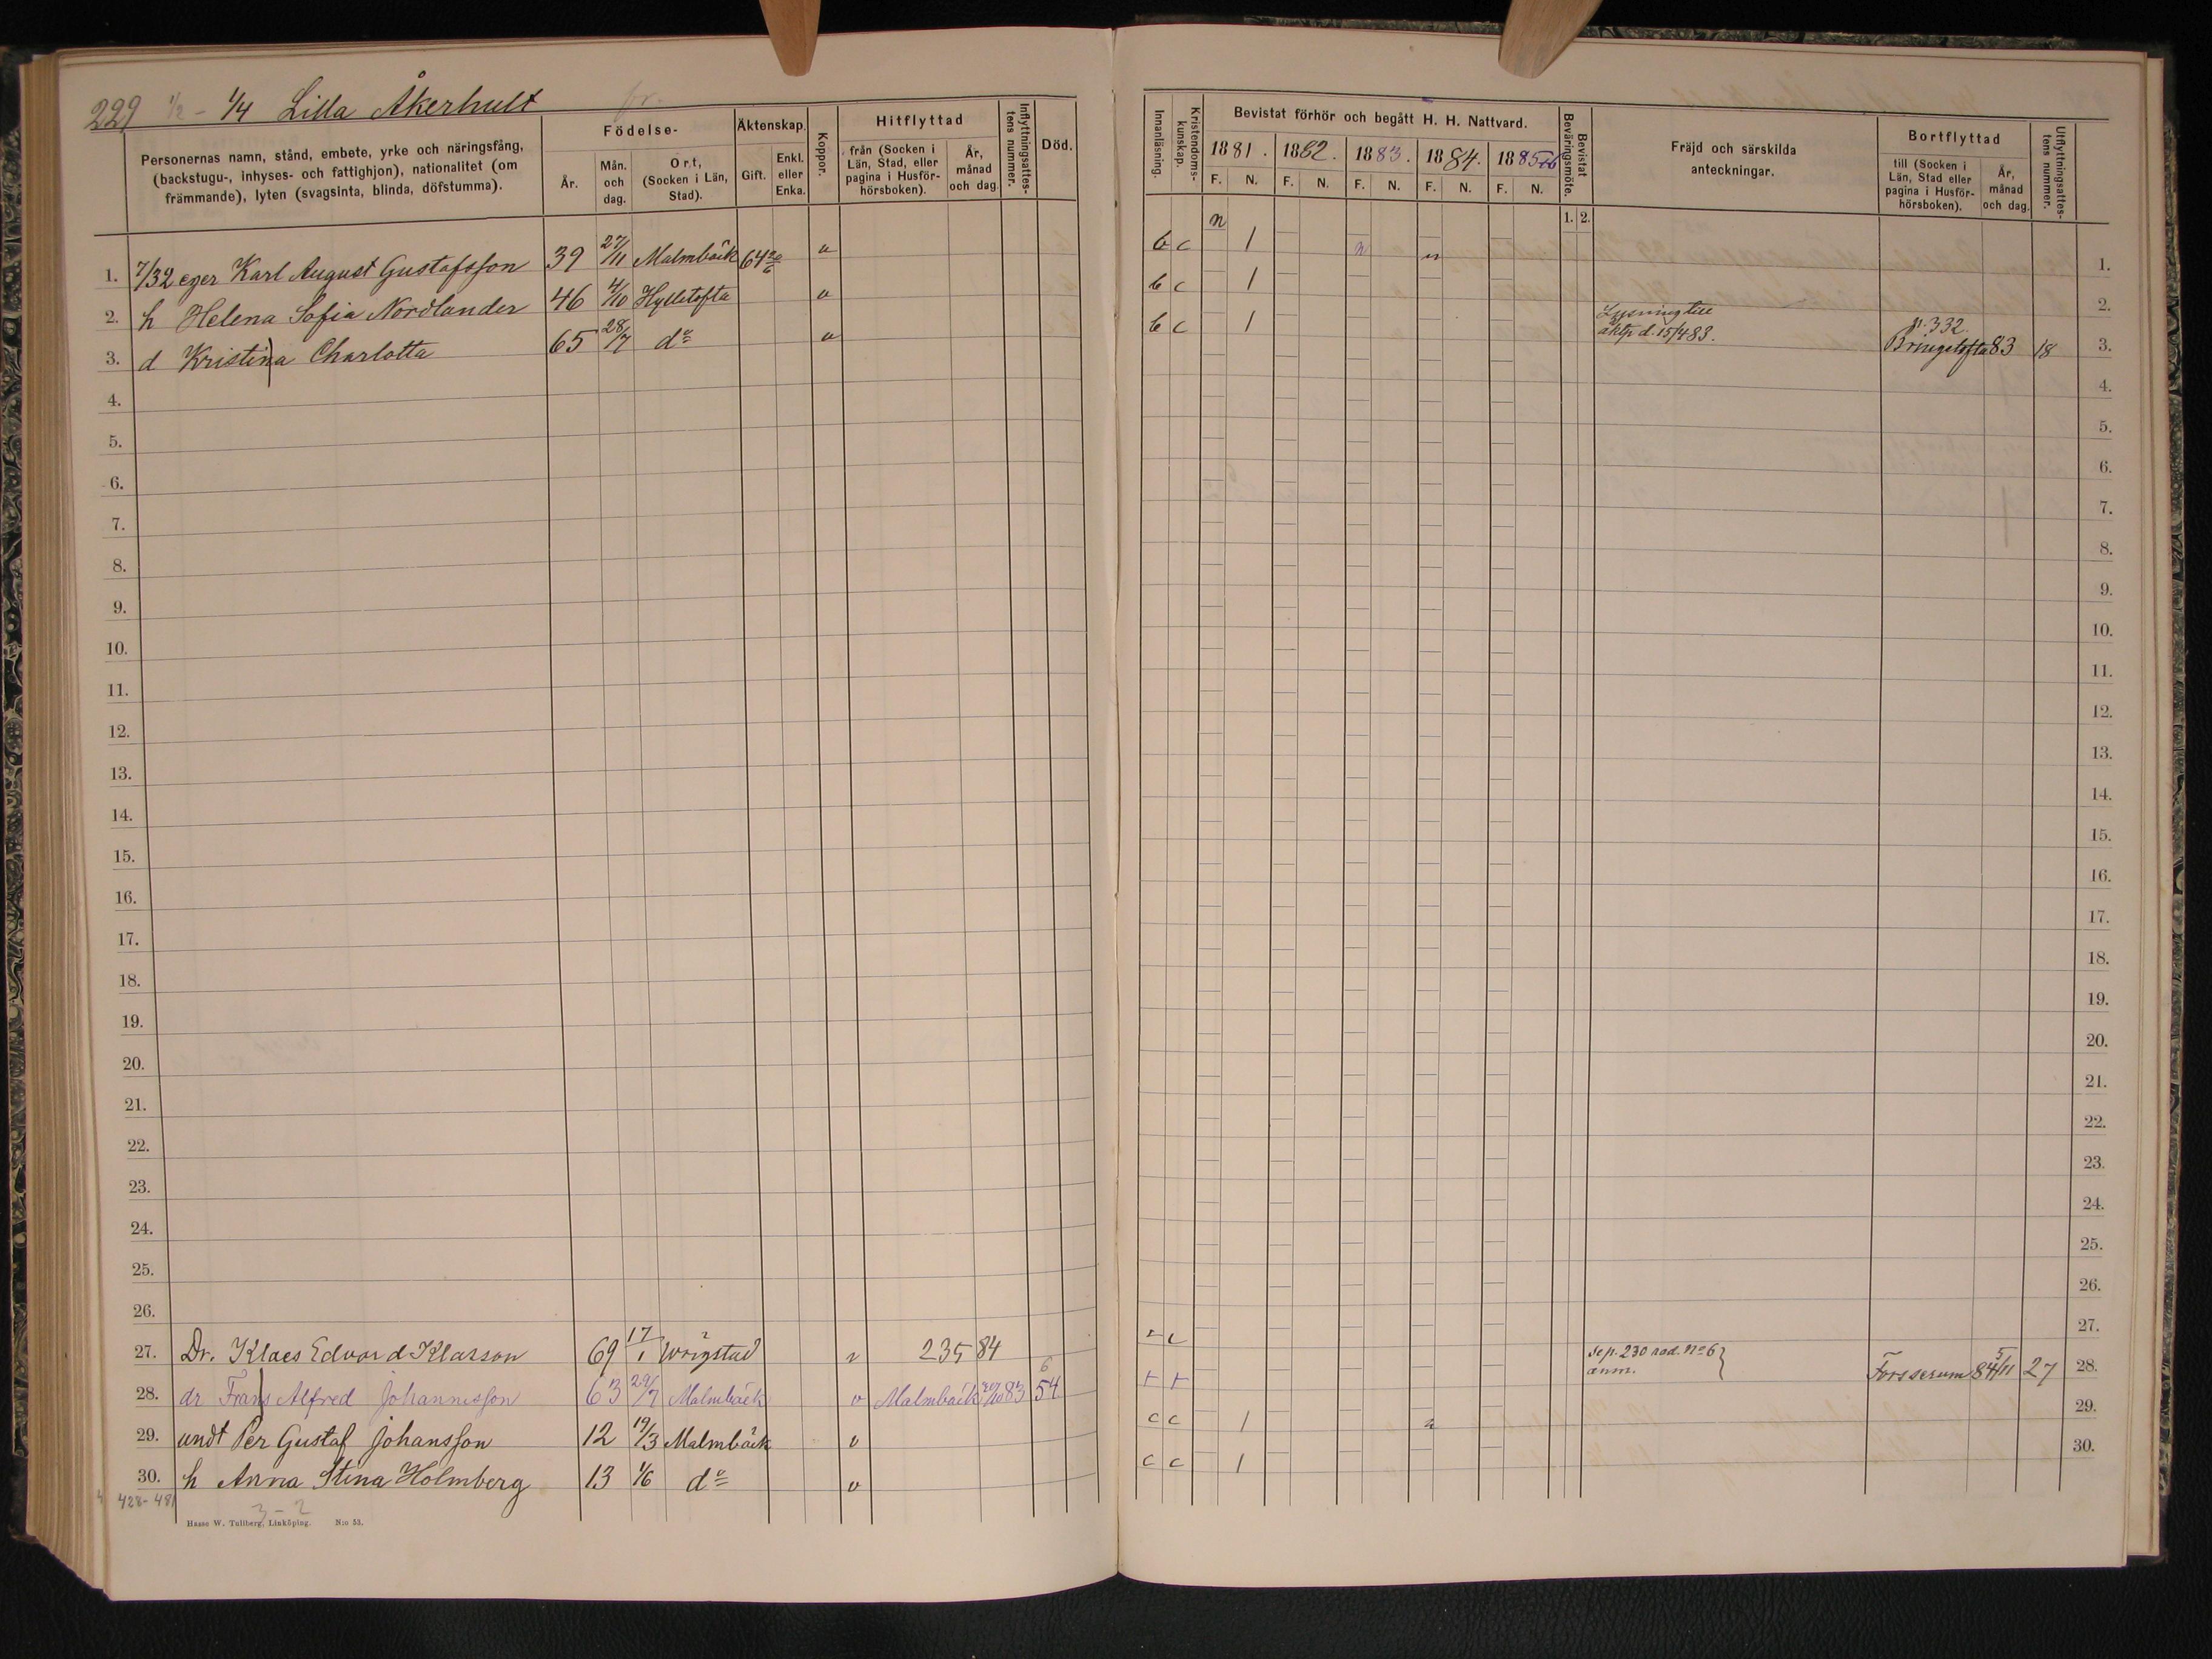 229 1/2 - 1/4 Lilla Åkerhult
Personernas namn, stånd, embete, yrke och näringsfång, (backstugu-, inhyses- och fattighjon), nationalitet (om främmande), lyten (svagsinta, blinda, döfstumma).
Födelse-
År.
Mån. och dag.
Ort, (Socken i Län, Stad).
Äktenskap.
Gift.
Enkl. eller Enka.
Koppor.
Hitflyttad
från (Socken i Län, Stad, eller pagina i Husförhörsboken).
År, månad och dag.
Inflyttningsattestens nummer.
Död.
Innanläsning.
Kristendomskunskap.
Bevistat förhör och begått H. H. Nattvard.
1881. 1882. 1883. 1884. 1885
F. N. F. N. F. N. F. N. F. N.
Bevistat Beväringsmöte.
1. 2.
Fräjd och särskilda anteckningar.
Bortflyttad
till (Socken i Län, Stad eller pagina i Husförhörsboken).
År, månad och dag.
Utflyttningsattestens nummer.
1. 7/32 eger Karl August Gustafsson 39 27/11 Malmbäck 64 v b c n 1 n n 1.
2. h Helena Sofia Nordlander 46 4/10 Hylletofta v b c 1 2.
3. d Kristina Charlotta 65 28/7 do v b c 1 Lysning till äktp d. 15/4 83. p. 332. Bringetofta 83 18 3.
4. 4.
5. 5.
6. 6.
7. 7.
8. 8.
9. 9.
10. 10.
11. 11.
12. 12.
13. 13.
14. 14.
15. 15.
16. 16.
17. 17.
18. 18.
19. 19.
20. 20.
21. 21.
22. 22.
23. 23.
24. 24.
25. 25.
26. 26.
27. Dr. Klaes Edvard Klasson 69 17/1 Wrigstad v 235 84 27.
28. dr Frans Alfred Johannesson 63 29/7 Malmbäck v Malmbäck 83 54 + + Se p. 230 rad. No 6 anm. } Forsserum 84 5/11 27 28.
29. undt Per Gustaf Johansson 12 19/3 Malmbäck v c c 1 n 29.
30. h Anna Stina Holmberg 13 1/6 do v c c 1 30.
428-481
3-2
Hasse W. Tullberg, Linköping. N:o 53.